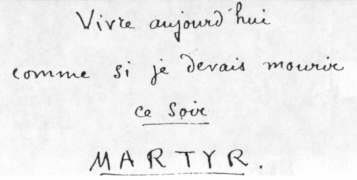 Vivre aujourd'hui
comme si je devais mourir
ce soir
MARTYR.